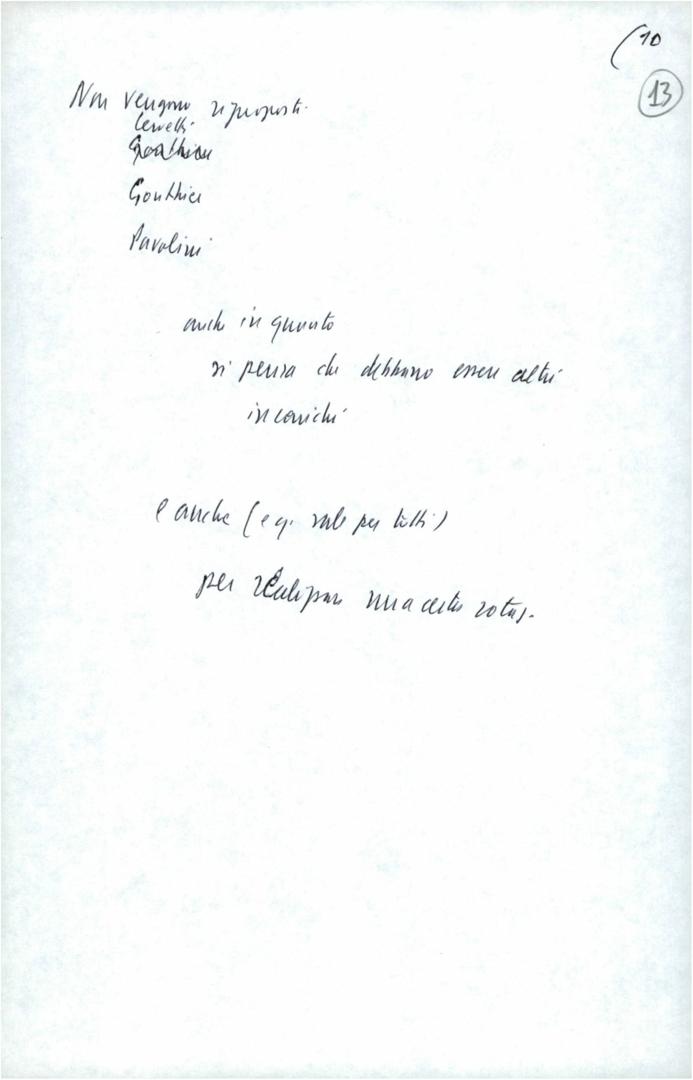 (10
13
Non vengono riproposti.
Cervetti
Gouthier
Gouthier
Pavolini
anche in quanto
si pensa che debbano essere altri
incarichi
e anche (e q. vale per tutti)
per realizzare una certa rotaz.